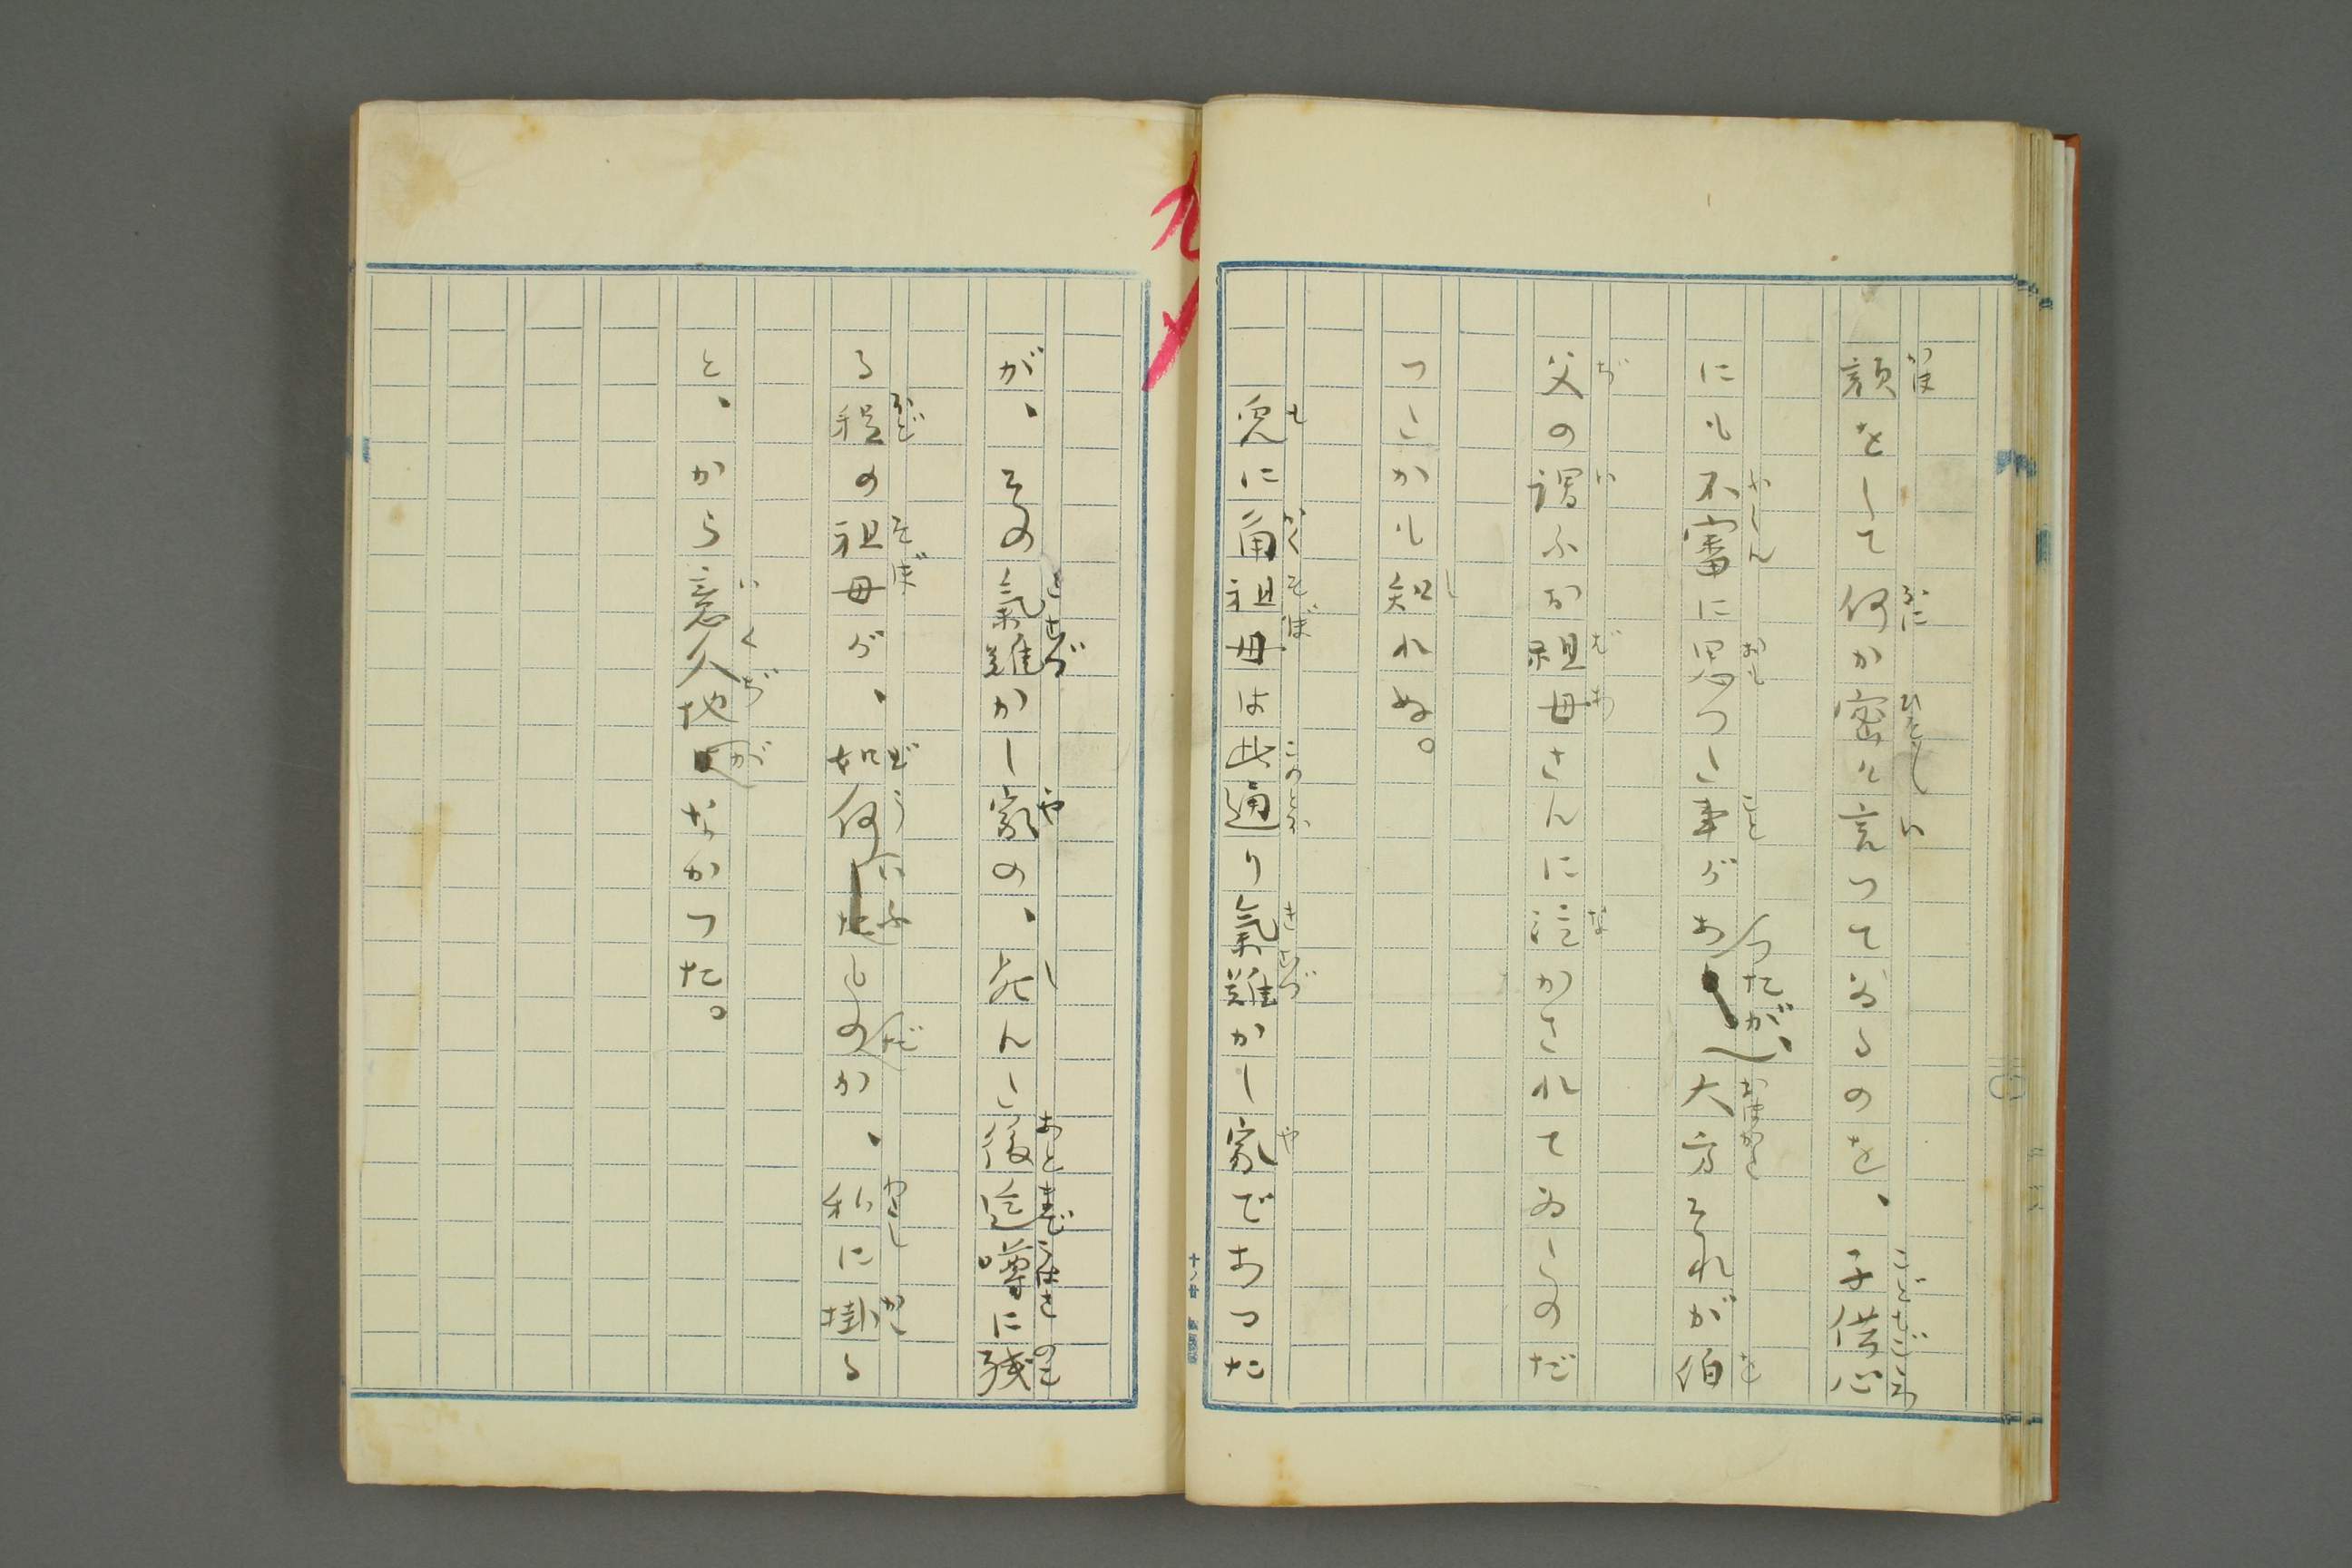 顔をして何か密々言つてゐるのを、子供心
にも不審に思つた事があつたが、大方それが伯
父の謂ふお祖母さんに泣かされてゐたのだ
つたかも知れぬ。
兎に角祖母は此通り氣難かし家であつた
が、その氣難かし家の、死んだ後迄噂に殘
る程の祖母が、如何いふものだか、私に掛る
と、から意久地がなかつた。